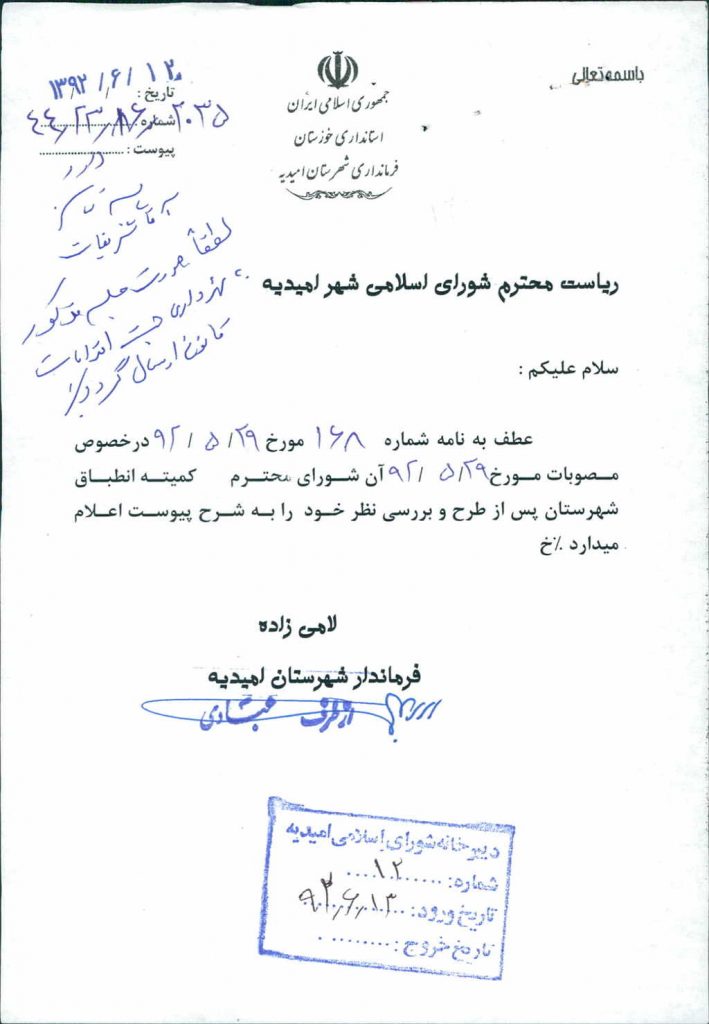 باسمه تعالی
جمهوری اسلامی ایران
استانداری خوزستان
فرمانداری شهرستان امیدیه
تاریخ : ۱۳۹۲/۶/۱۲
شماره :
پیوست : دارد
لطفاً صورت جلسه مذکور
به شهرداری جهت اقدامات
قانونی ارسال گردد
ریاست محترم شورای اسلامی شهر امیدیه
سلام علیکم :
عطف به نامه شماره ۱۶۸ مورخ ۹۲/۵/۲۹ درخصوص
مصوبات مورخ ۹۲/۵/۲۹ آن شورای محترم کمیته انطباق
شهرستان پس از طرح و بررسی نظر خود را به شرح پیوست اعلام
میدارد ٪خ
لامی زاده
فرماندار شهرستان امیدیه
از طرف
دبیرخانه شورای اسلامی امیدیه
شماره: ۱۲
تاریخ ورود:
تاریخ خروج :